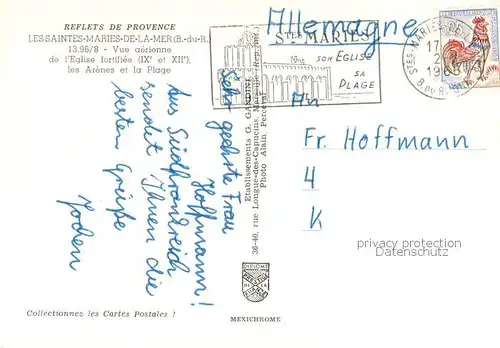 REFLETS DE PROVENCE
LES SAINTES-MARIES-DE-LA-MER (B.-du-R.)
13.96/8 - Vue aérienne
de l'Eglise fortifiée (IXᵉ et XIIᵉ),
les Arènes et la Plage
Allemagne
STES MARIES
SON EGLISE
SA
PLAGE
STES-MARIES-DE-LA
17
B. DU R.
Sehr geehrte Frau
Hoffmann!
Aus Südfrankreich
sendet Ihnen die
besten Grüße
Jochen
Etablissements G. GANDINI
36-40, rue Longue-des-Capucins, Marseille
Photo Alain Perceval
An
Fr. Hoffmann
4
K
privacy protection
Datenschutz
DIPLOME
PRESTIGE
DE LA
FRANCE
Collectionnez les Cartes Postales !
MEXICHROME